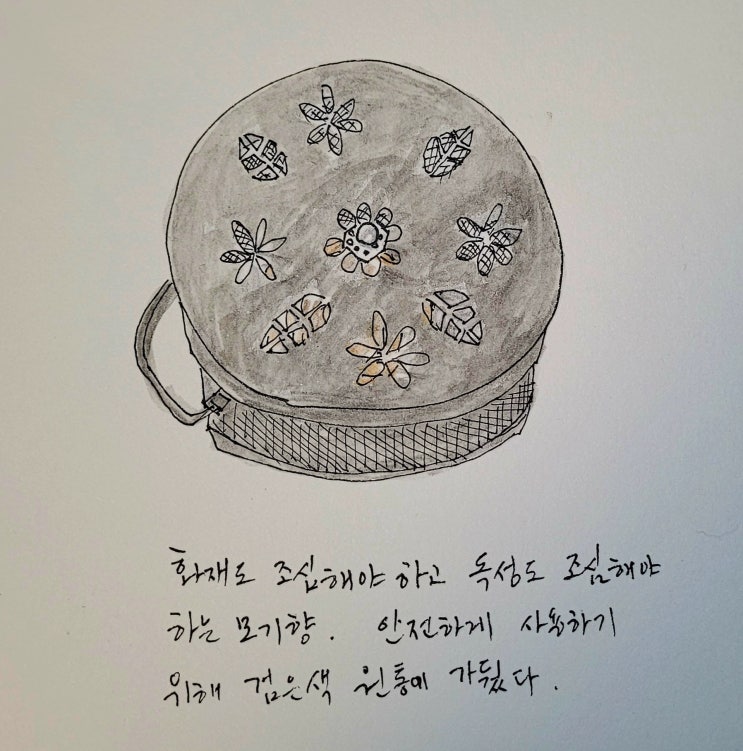 화재도 조심해야 하고 독성도 조심해야
하는 모기향. 안전하게 사용하기
위해 검은색 원통에 가뒀다.